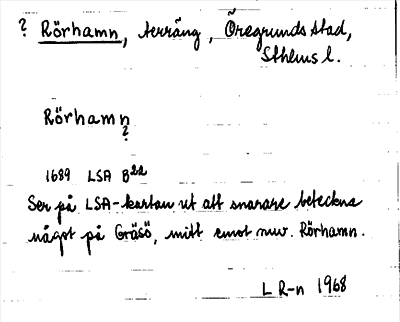 ? Rörhamn, terräng, Öregrunds stad,
Sthlms l.
Rörhamn
?
1689 LSA B22
Ser på LSA-kartan ut att snarare beteckna
något på Gräsö, mitt emot nuv. Rörhamn.
L R-n 1968